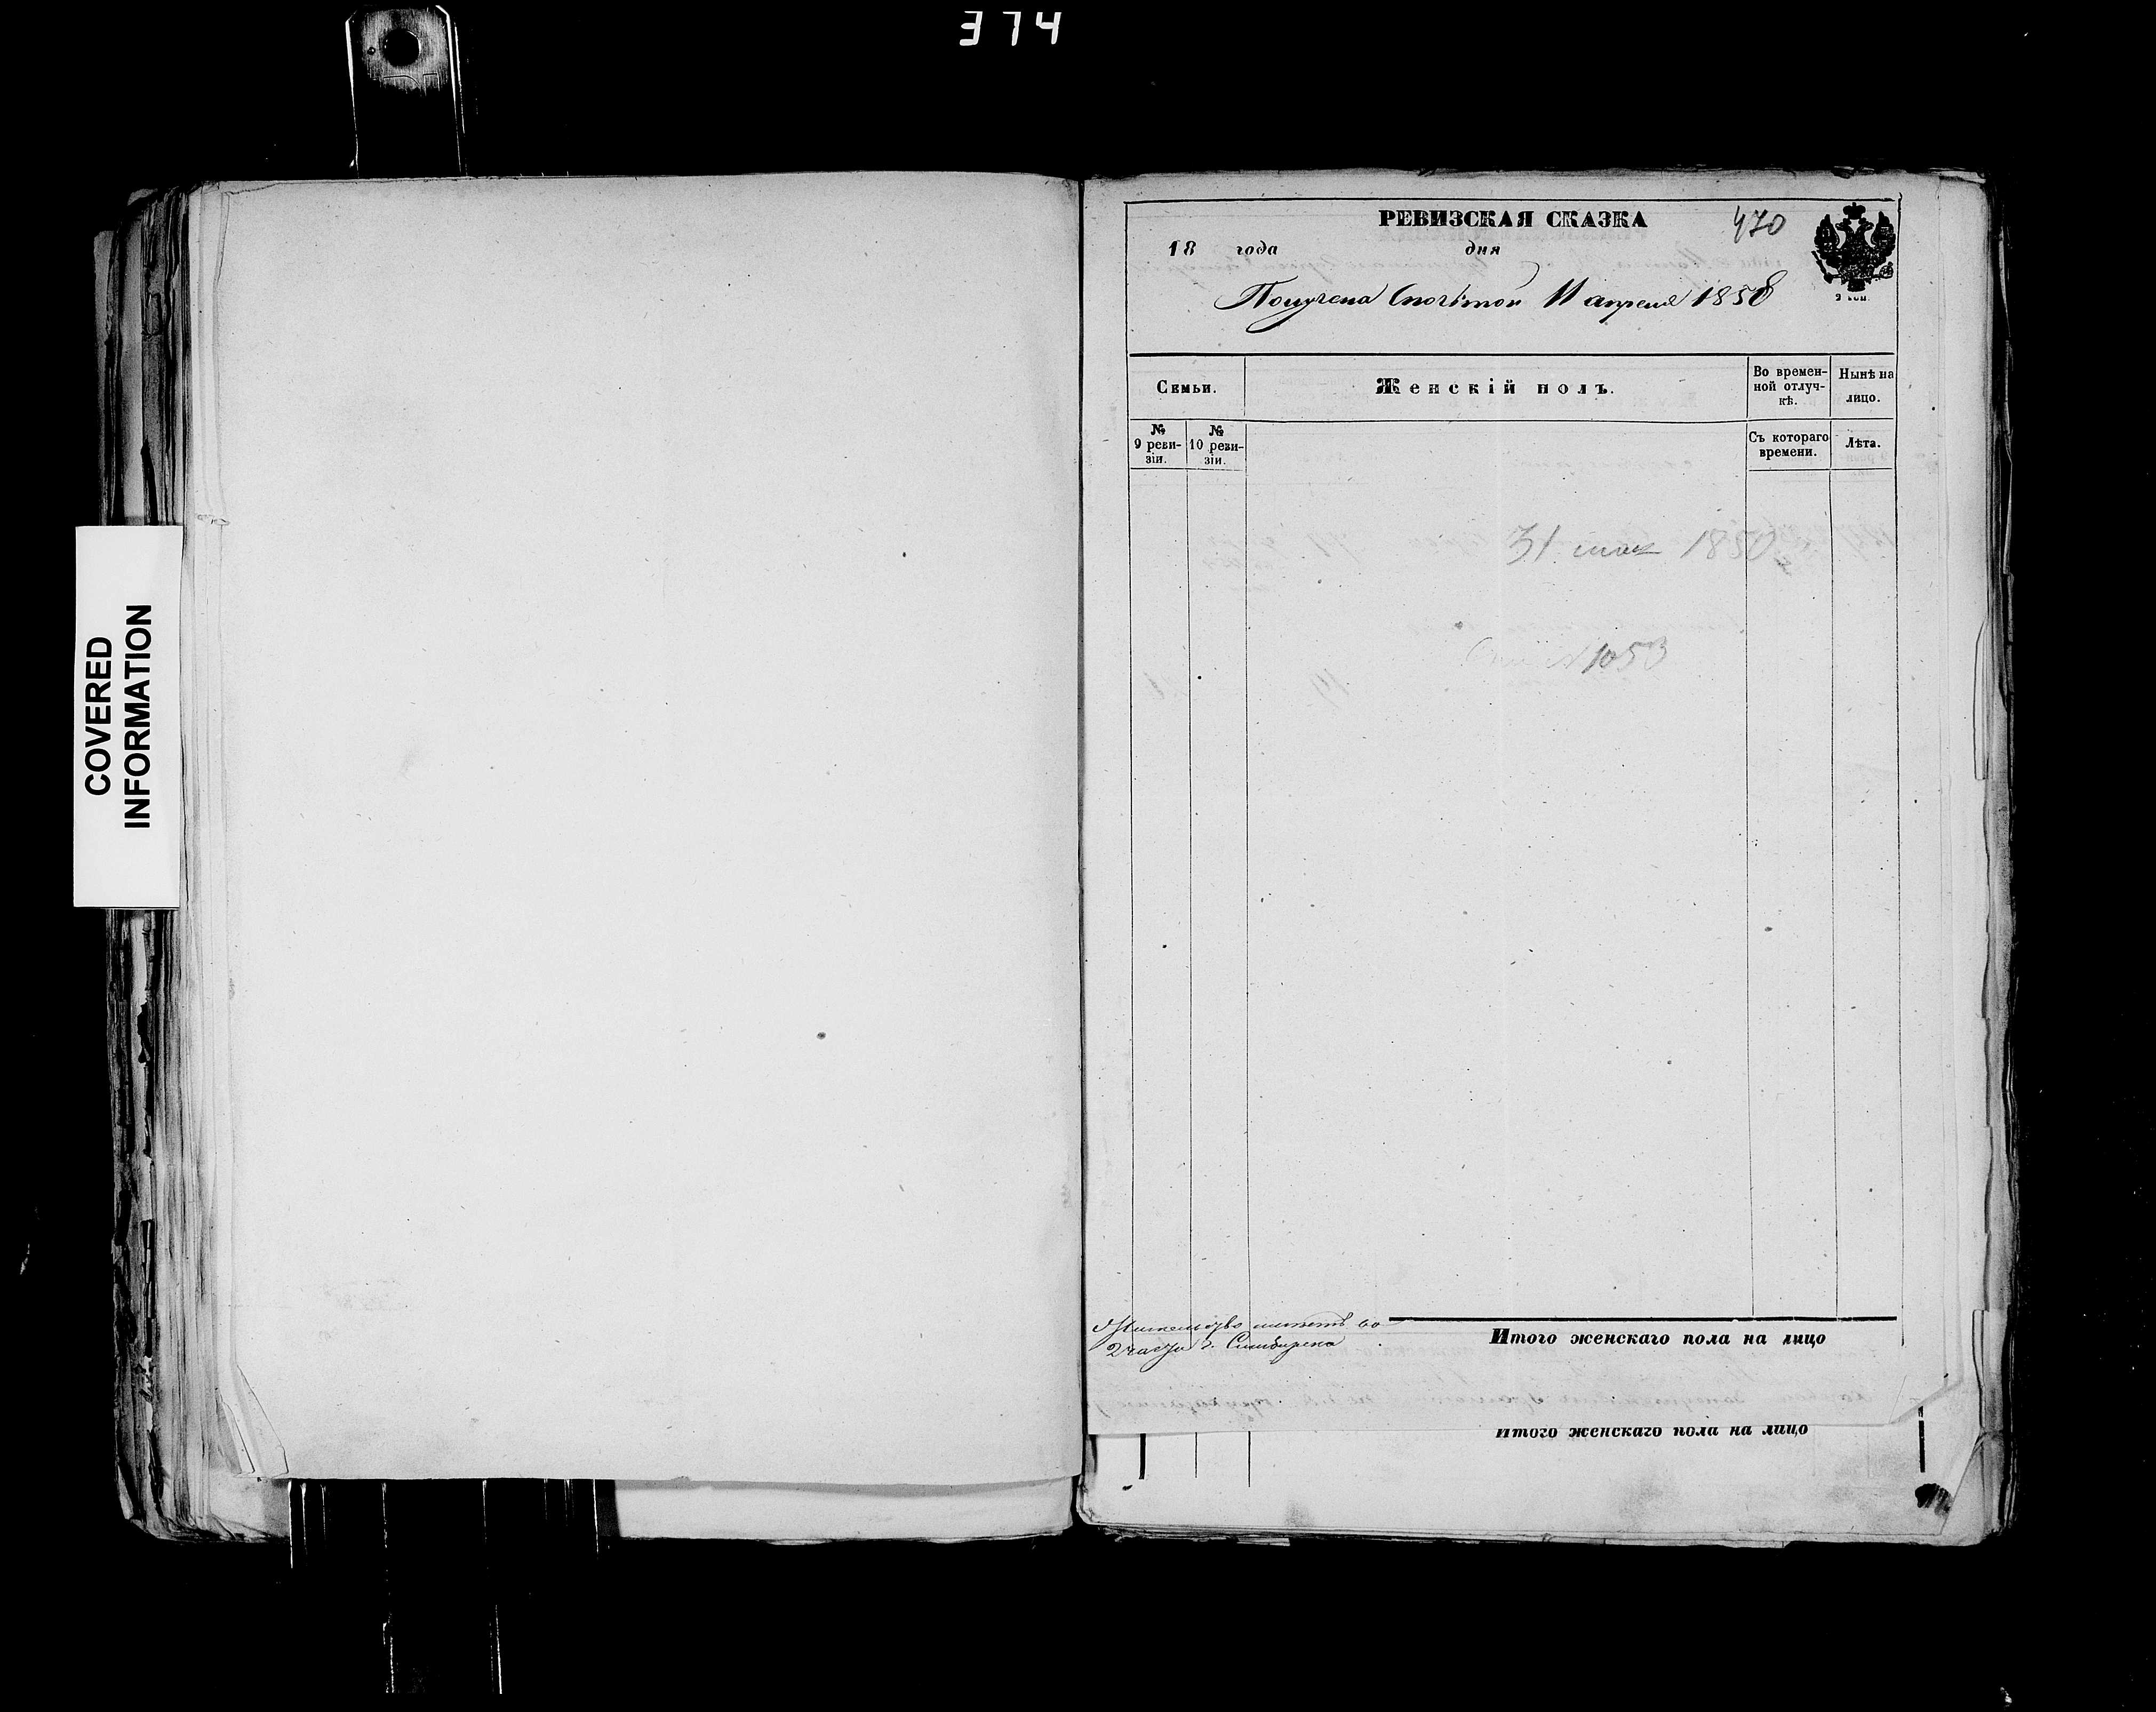 374
COVERED
INFORMATION
РЕВИЗСКАЯ СКАЗКА
470
18 года дня
2 коп.
Получена с почтой 11 апреля 1858
Семьи.
Женскій полъ.
Во времен-
ной отлуч-
кѣ.
Нынѣ на
лицо.
№
9 реви-
зіи.
№
10 реви-
зіи.
Съ котораго
времени.
Лѣта.
31 мая 1850
№ 1053
Жительство имѣетъ во
2 части г. Симбирска
Итого женскаго пола на лицо
Итого женскаго пола на лицо